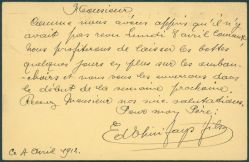 Monsieur
Comme nous avions appris qu'il n'y
avait pas reçu Lundi 8 avril
nous profiterons de laisser les bottes
quelques jours de plus sur les embau-
choirs et nous vous les enverrons dans
le début de la semaine prochaine
Recevez Monsieur nos salutations.
Pour mon Père:
Ce Avril 1912.